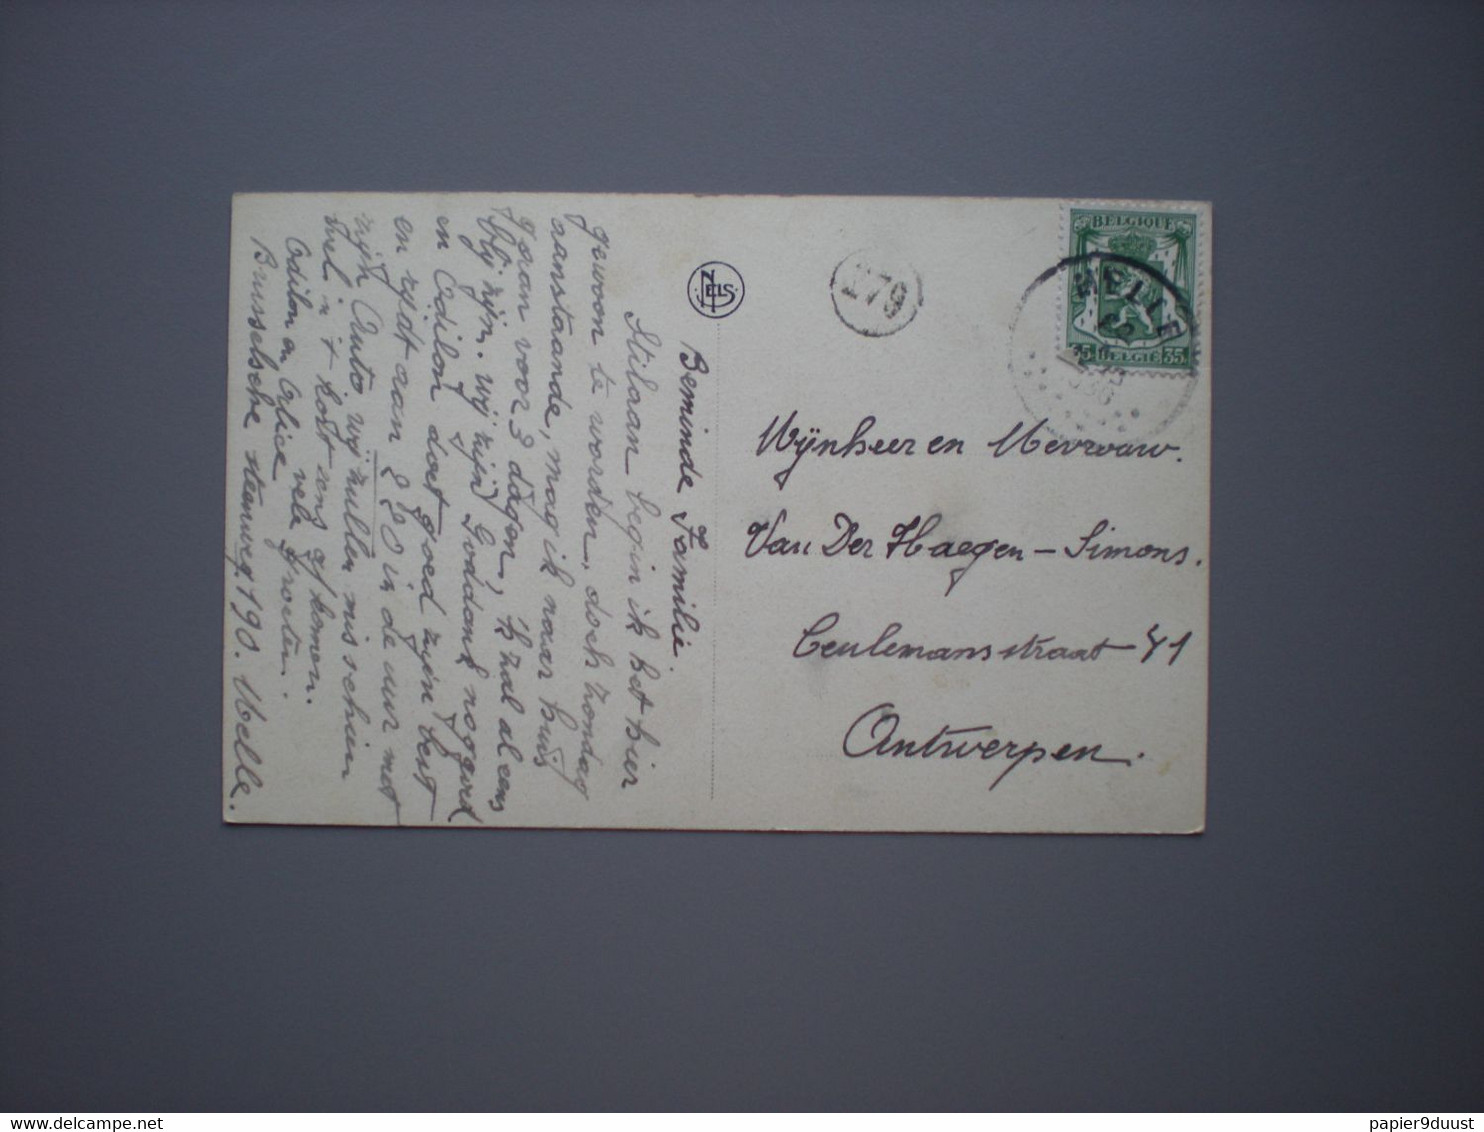 Beminde Familie.
Stilaan begin ik het hier
gewoon te worden, doch zondag
aanstaande, mag ik naar huis
gaan voor 3 dagen, 'k zal al eens
blij zijn. wij zijn Goddank nog goed
en Odilon doet goed zijn best
en rijdt aan 220 in de uur met
zijn Auto wij zullen misschien
wel in 't kort ons afkomen.
Odilon en Alice vele groeten.
Brusselsche steenweg. 190. Melle.
NELS
179
BELGIQUE
35 BELGIË 35
MELLE
Mijnheer en Mevrouw.
Van Der Haegen - Simons.
Ceulemansstraat 41
Antwerpen.
delcampe.net
papier9duust